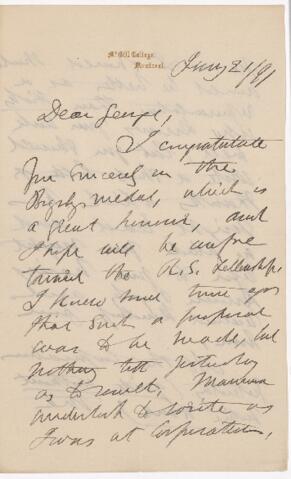 McGill College,
Montreal.
June 21/91
Dear George,
I congratulate
you sincerely on the
Bigsby medal, which is
a great honour, and
I hope will be
toward the R.S. Fellowship.
I knew some time ago
that such a proposal
was to be made, but
nothing till yesterday
as to result. Mamma
undertook to write as
I was at Corporation,